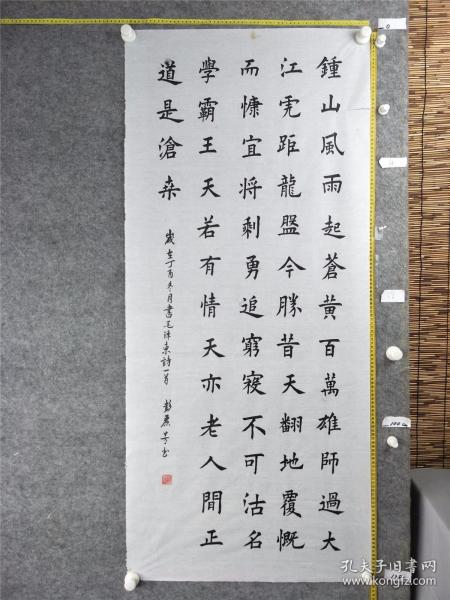 鍾山風雨起蒼黃百萬雄師過大
江虎距龍盤今勝昔天翻地覆慨
而慷宜將剩勇追窮寇不可沽名
學霸王天若有情天亦老人間正
道是滄桑
歲在丁酉冬月書毛泽東詩一首
孔夫子旧书网